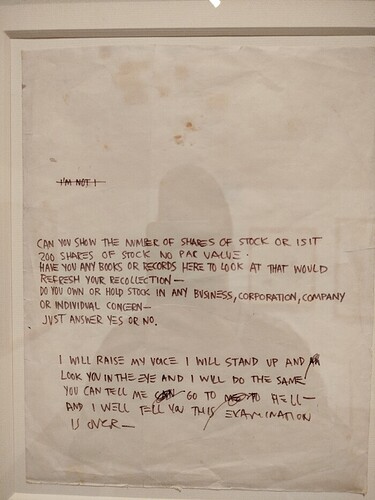 I'M NOT I
CAN YOU SHOW THE NUMBER OF SHARES OF STOCK OR ISIT
200 SHARES OF STOCK NO PAR VALUE.
HAVE YOU ANY BOOKS OR RECORDS HERE TO LOOK AT THAT WOULD
REFRESH YOUR RECOLLECTION—
DO YOU OWN OR HOLD STOCK IN ANY BUSINESS, CORPORATION, COMPANY
OR INDIVIDUAL CONCERN—
JUST ANSWER YES OR NO.
I WILL RAISE MY VOICE I WILL STAND UP AND
LOOK YOU IN THE EYE AND I WILL DO THE SAME
YOU CAN TELL ME GO TO HELL—
AND I WELL TELL YOU THIS EXAMINATION
IS OVER—